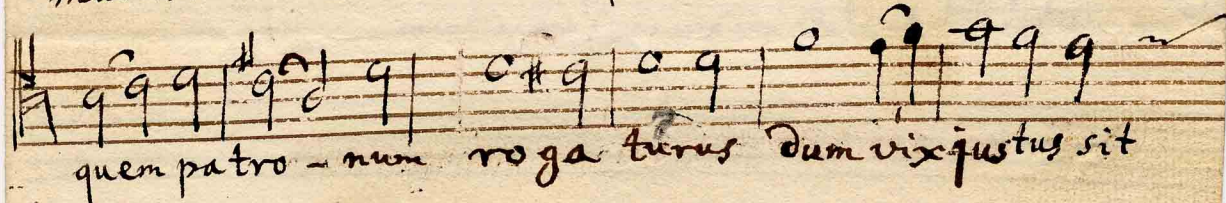 quem patro - num ro ga turus dum vix justus sit